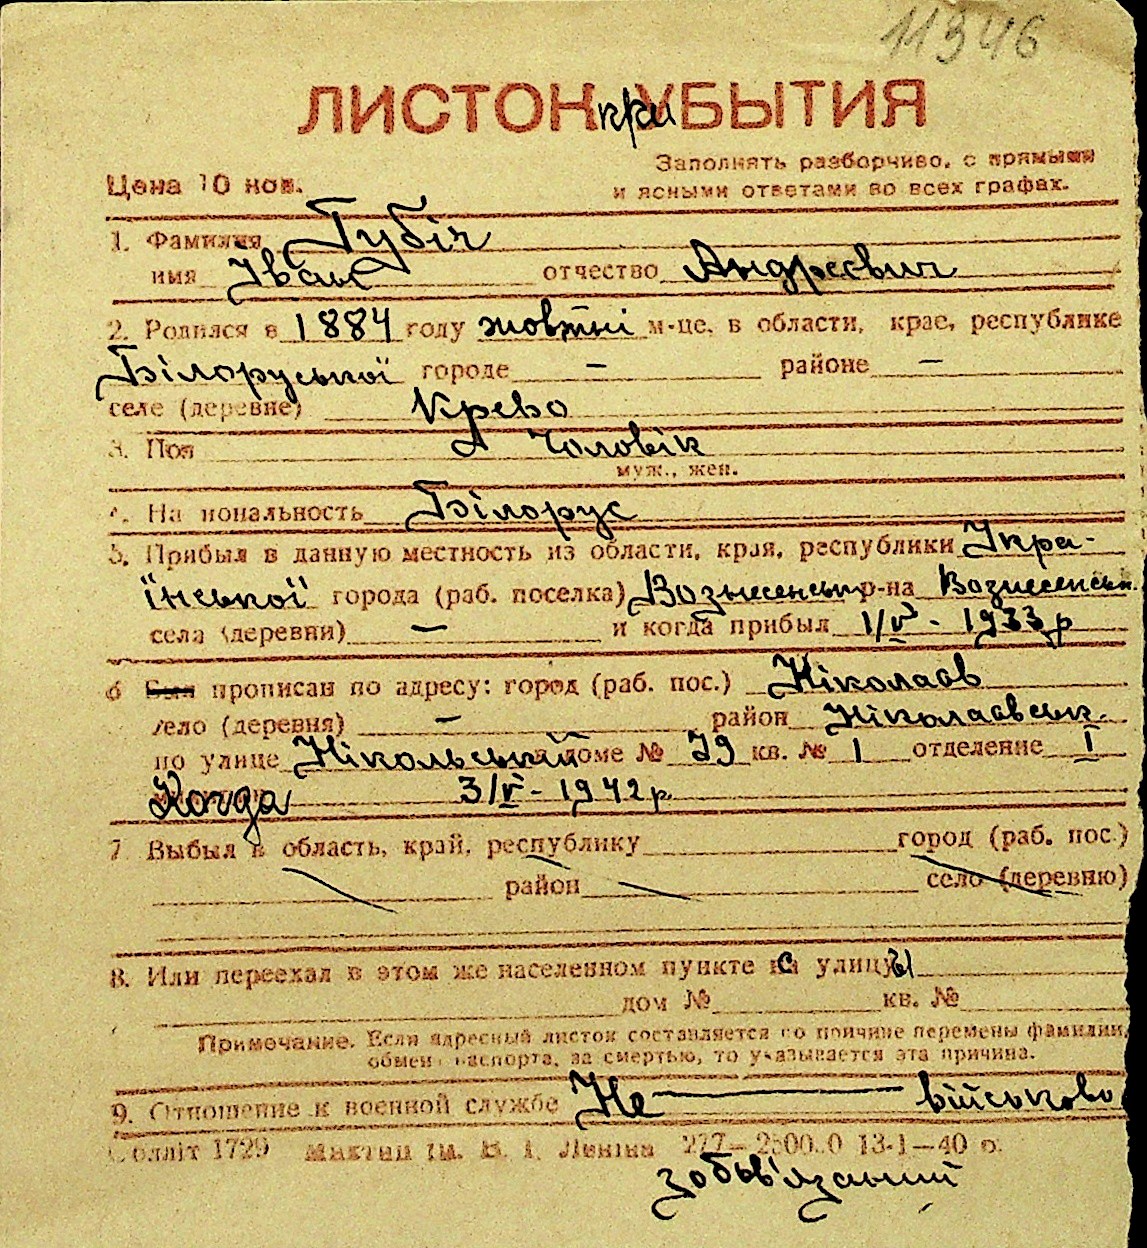 11346
ЛИСТОК прибЫТИЯ
Заполнять разборчиво, с прямыми
Цена 10 коп.
и ясными ответами во всех графах.
1. Фамилия Губіч
имя Іван отчество Андреєвич
2. Родился в 1884 году жовтні м-це, в области, крае, республике
Білоруської городе – районе –
селе (деревне) Крево
3. Пол Чоловік
муж., жен.
4. Национальность Білорус
5. Прибыл в данную местность из области, края, республики Укра-
їнської города (раб. поселка) Вознесенськ р-на Вознесенськ.
села (деревни) – и когда прибыл 1/V - 1933 р
6 Был прописан по адресу: город (раб. пос.) Ніколаєв
село (деревня) – район Ніколаєвськ.
по улице Нікольській доме № 79 кв. № 1 отделение I
Когда 3/V - 1942 р
7. Выбыл в область, край, республику город (раб. пос.)
район село (деревню)
8. Или переехал в этом же населенном пункте с улицы
дом № кв. №
Примечание. Если адресный листок составляется по причине перемены фамилии,
обмена паспорта, за смертью, то указывается эта причина.
9. Отношение к военной службе Не — військово
Облліт 1729 ім. В. І. Леніна 277— 13-1—40 р.
зобов'язаний